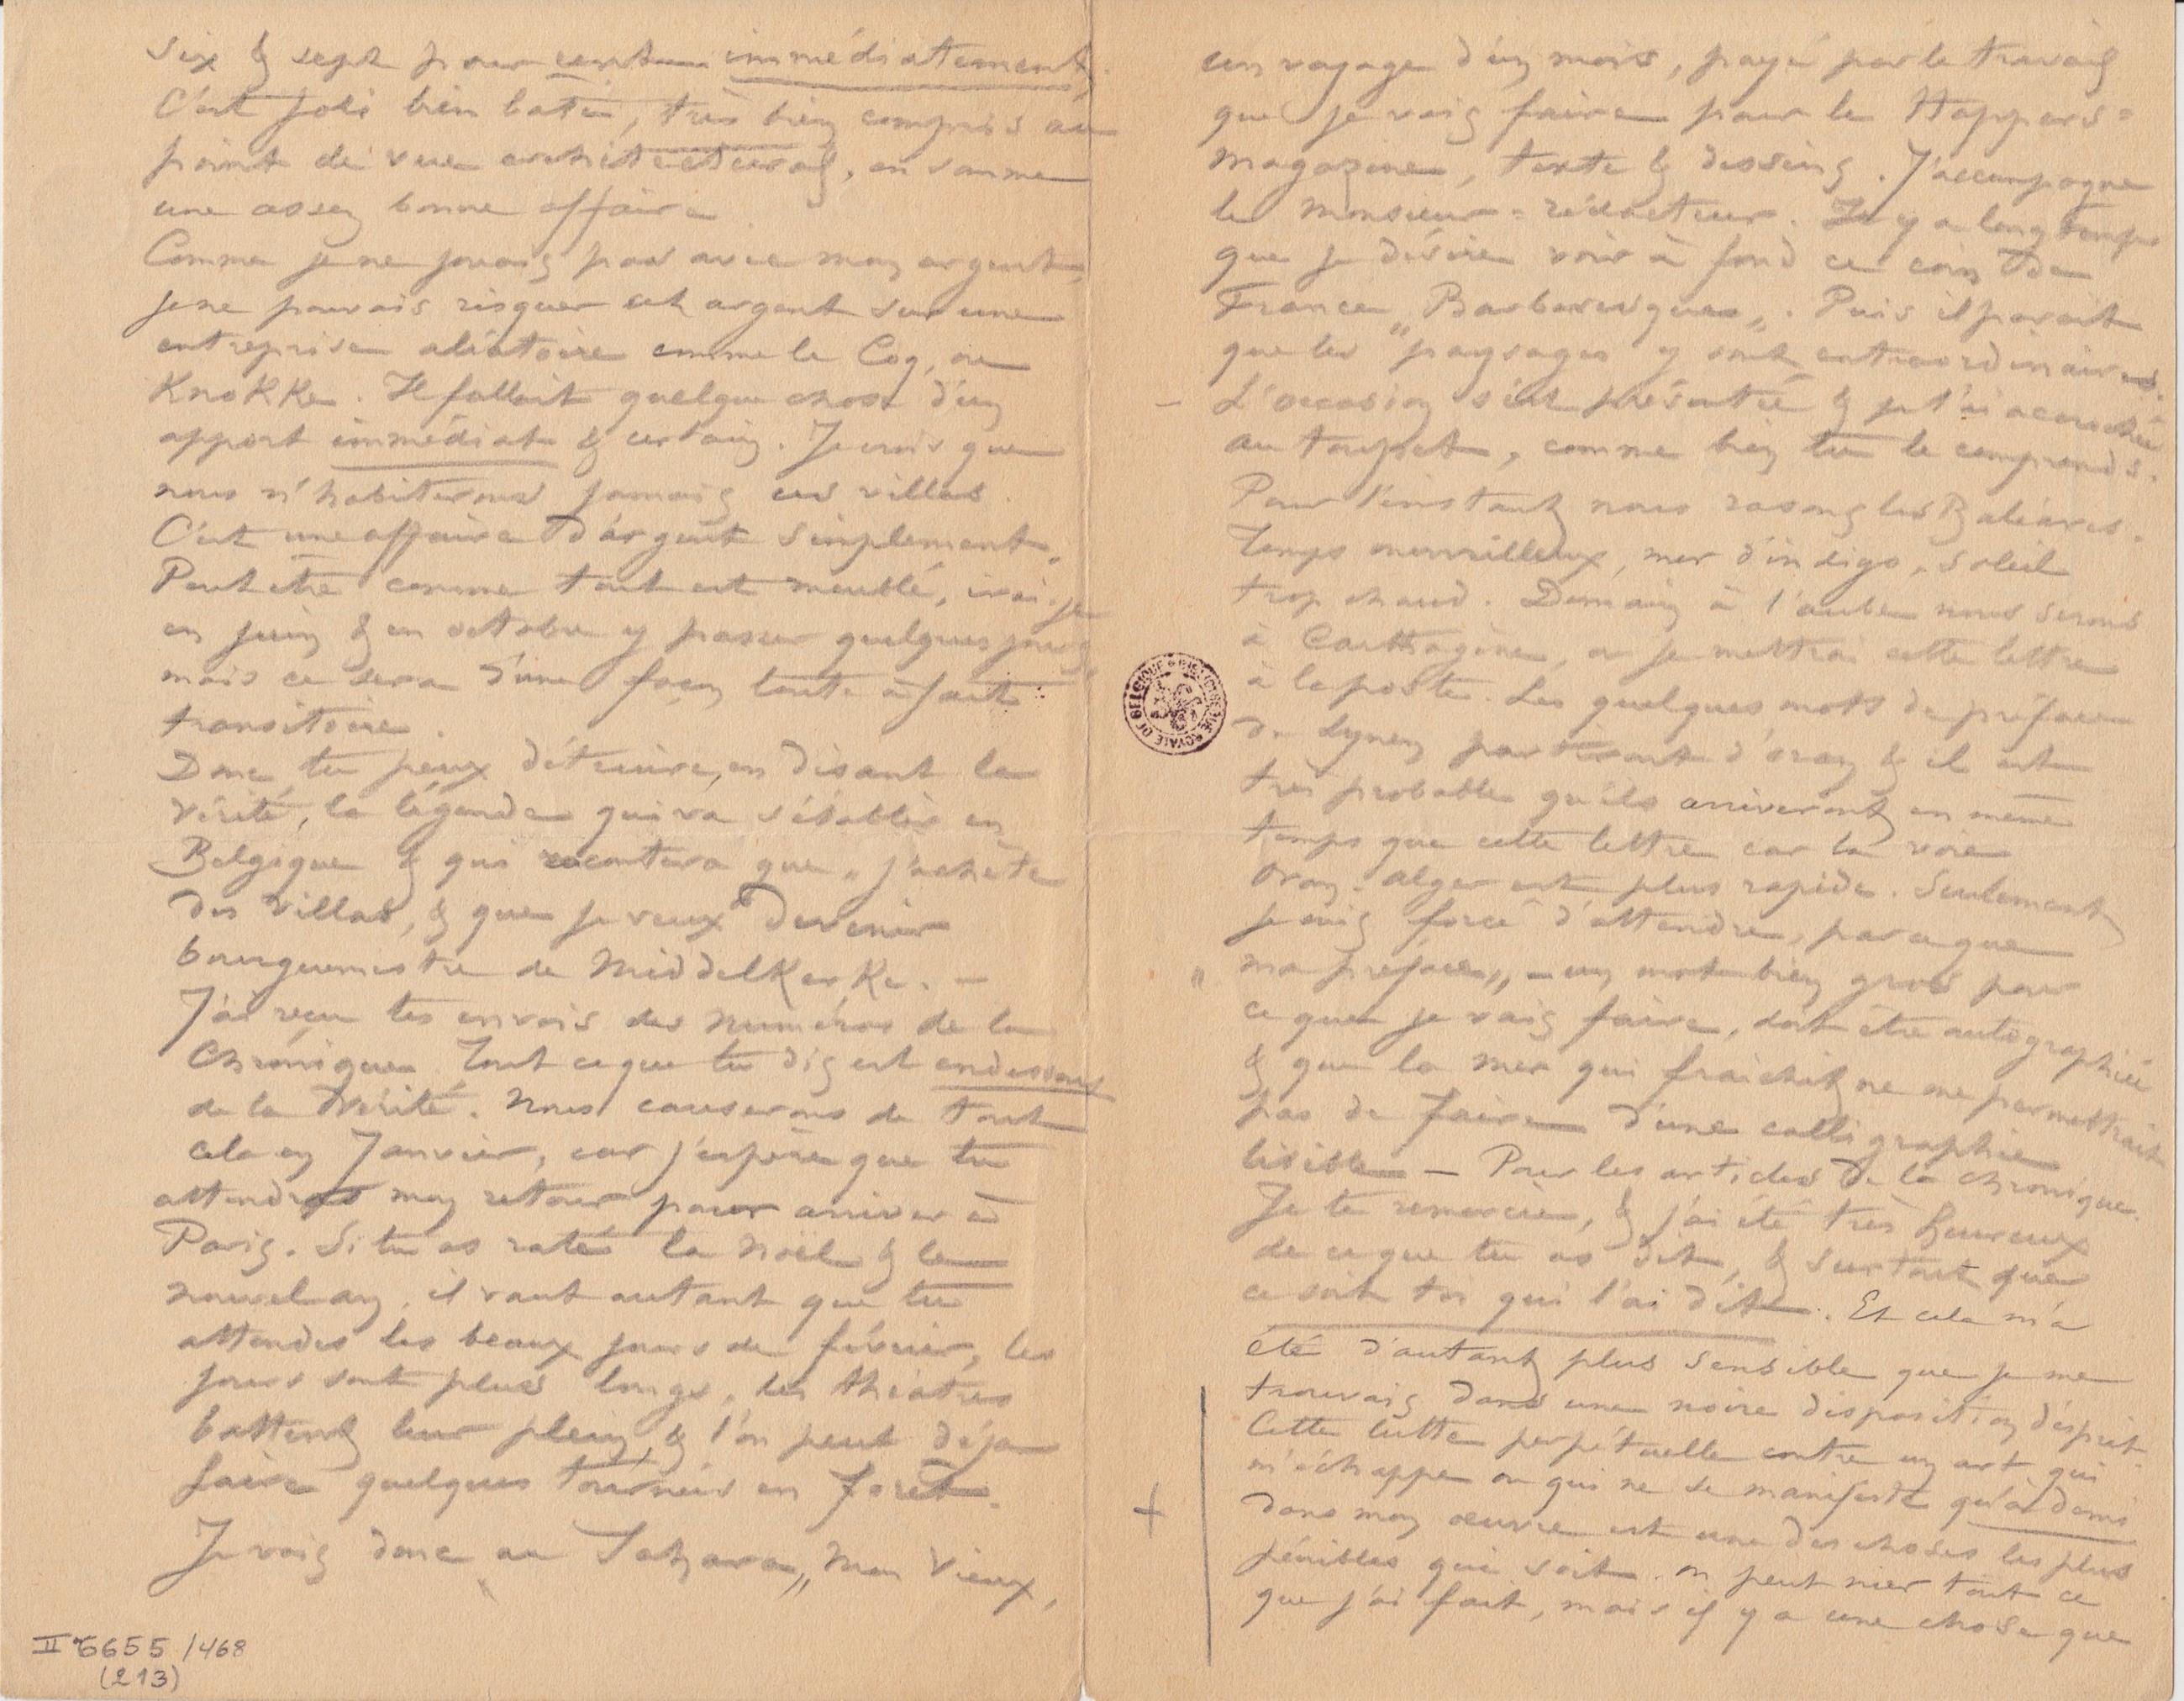 six & sept pour cent immédiatement.
C'est joli bien bati, très bien compris au
point de vue architectural, en somme
une assez bonne affaire
Comme je ne jouais pas avec mon argent,
je ne pouvais risquer cet argent sur une
entreprise aléatoire comme le Coq, ou
Knokke. Il fallait quelque chose d'un
apport immédiat & certain. Je crois que
nous n'habiterons jamais ces villas.
C'est une affaire d'argent simplement.
Peut etre comme tout est meublé, irai-je
en juin & en octobre y passer quelques jours,
mais ce sera d'une façon toute à fait
transitoire.
Donc tu peux détruire, en disant la
vérité, la légende qui va s'établir en
Belgique & qui racontera que „j'achète
des villas, & que je veux devenir
bourguemestre de Middelkerke. –
J'ai reçu tes envois des numéros de la
Chronique. Tout ce que tu dis est endessous
de la vérité. Nous causerons de tout
cela en Janvier, car j'espère que tu
attendras mon retour pour arriver à
Paris. Si tu as raté la Noël & le
nouvel an, il vaut autant que tu
attendes les beaux jours de février, les
jours sont plus longs, les théatres
battent leur plein, & l'on peut déja
faire quelques tournées en forêt.
Je vais donc au Sahara, mon Vieux,
II 6655 /468
(213)
un voyage d'un mois, payé par le travail
que je vais faire pour le Happers=
magazine, texte & dessins. J'accompagne
le monsieur=rédacteur. Il y a longtemps
que je désire voir à fond ce coin de
France „Barbaresque„. Puis il parait
que les paysages y sont extraordinaires.
– L'occasion s'est présentée & je l'ai accrochée
au toupet, comme bien tu le comprends.
Pour l'instant nous rasons les Baléares.
Temps merveilleux, mer d'indigo, soleil
trop chaud. Demain à l'aube nous serons
à Carthagène, ou je mettrai cette lettre
à la poste. Les quelques mots de préface
du Lynen partiront d'oran & il est
très probable qu'ils arriveront en même
temps que cette lettre car la voie
Oran-Alger est plus rapide. Seulement
je suis forcé d'attendre, parceque
„ma préface„ – un mot bien gros pour
ce que je vais faire, doit être autographiée
& que la mer qui fraichit ne me permettrait
pas de faire d'une calligraphie
lisible – Pour les articles de la chronique.
Je te remercie, & j'ai été très heureux
de ce que tu as dit, & surtout que
ce soit toi qui l'ai dit. Et cela m'a
été d'autant plus sensible que je me
trouvais dans une noire disposition d'esprit.
Cette lutte perpétuelle contre un art qui
+ m'échappe ou qui ne se manifeste qu'à demi
dans mon oeuvre est une des choses les plus
pénibles qui soit. On peut nier tout ce
que j'ai fait, mais il y a une chose que
BIBLIOTHEQUE ROYALE DE BELGIQUE